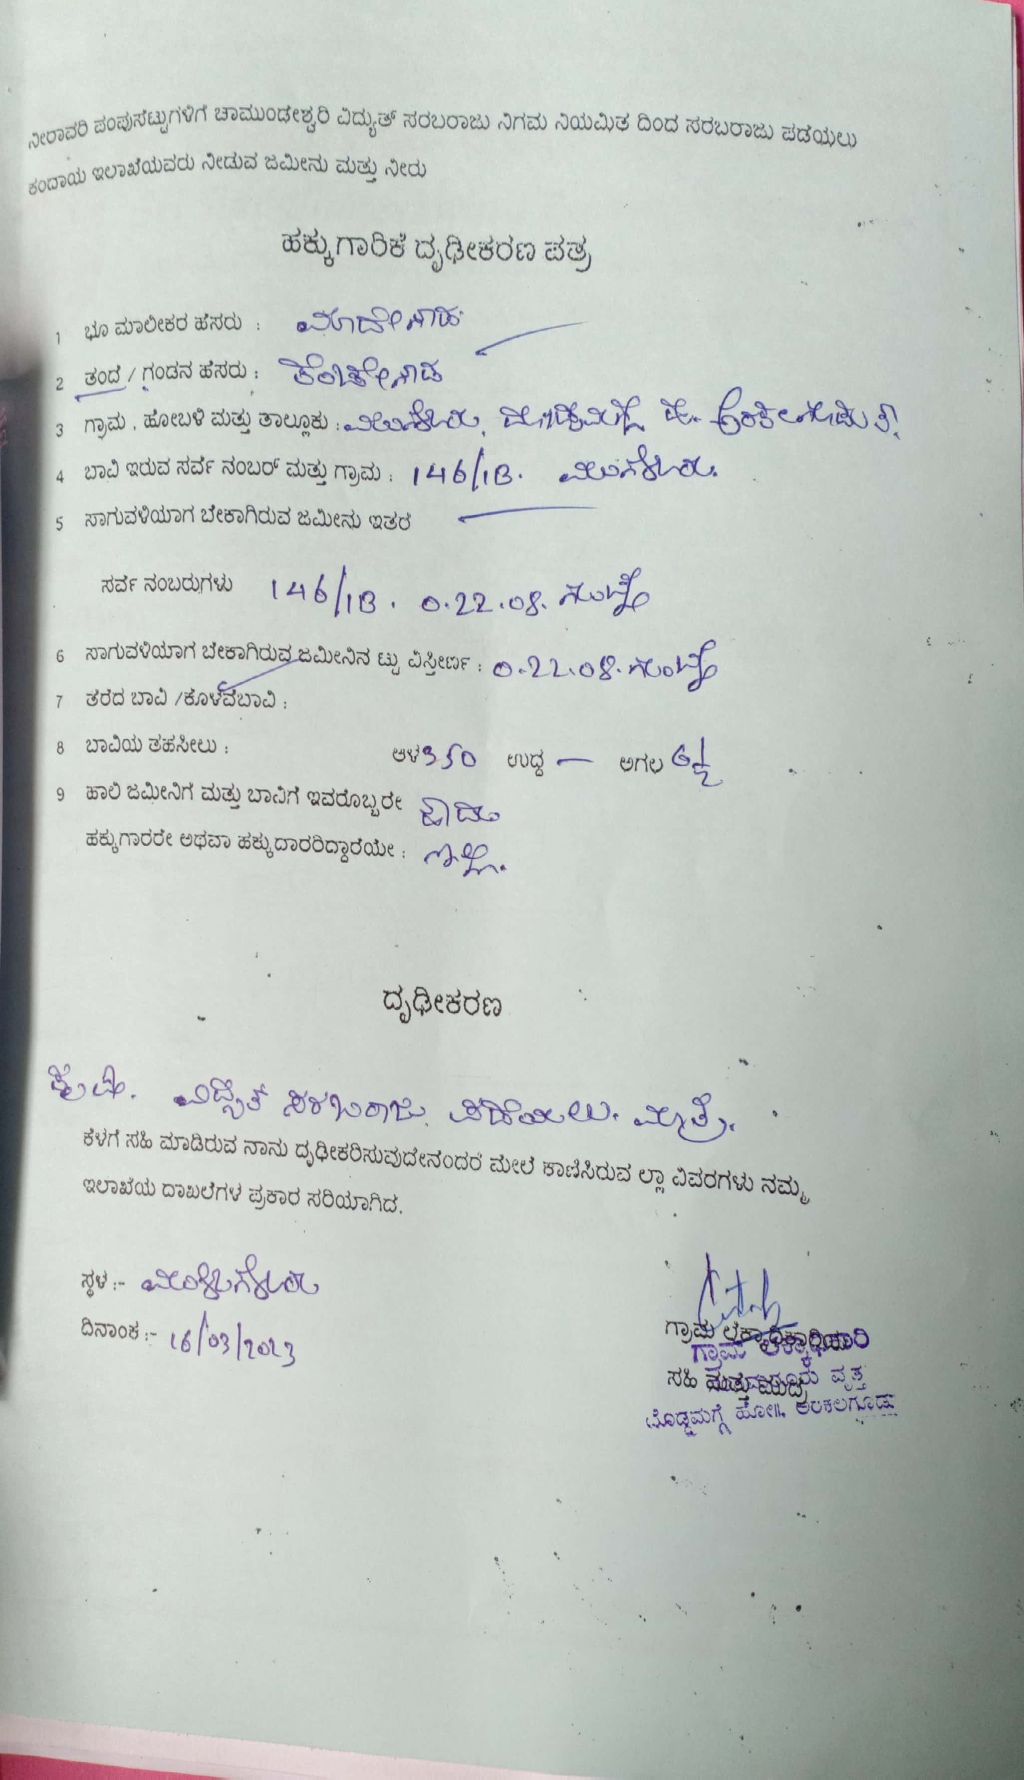 ನೀರಾವರಿ ಪಂಪುಸೆಟ್ಟುಗಳಿಗೆ ಚಾಮುಂಡೇಶ್ವರಿ ವಿದ್ಯುತ್ ಸರಬರಾಜು ನಿಗಮ ನಿಯಮಿತ ದಿಂದ ಸರಬರಾಜು ಪಡೆಯಲು
ಕಂದಾಯ ಇಲಾಖೆಯವರು ನೀಡುವ ಜಮೀನು ಮತ್ತು ನೀರು
ಹಕ್ಕುಗಾರಿಕೆ ದೃಢೀಕರಣ ಪತ್ರ
1 ಭೂ ಮಾಲೀಕರ ಹೆಸರು : ಮಾದೇಗೌಡ
2 ತಂದೆ / ಗಂಡನ ಹೆಸರು : ಕೆಂಚೇಗೌಡ
3 ಗ್ರಾಮ , ಹೋಬಳಿ ಮತ್ತು ತಾಲ್ಲೂಕು : ದೊಡ್ಡಮಗ್ಗೆ ಹೋ. ಅರಕಲಗೂಡು ತಾ.
4 ಬಾವಿ ಇರುವ ಸರ್ವೆ ನಂಬರ್ ಮತ್ತು ಗ್ರಾಮ : 146/1B.
5 ಸಾಗುವಳಿಯಾಗ ಬೇಕಾಗಿರುವ ಜಮೀನು ಇತರ
ಸರ್ವೆ ನಂಬರುಗಳು 146/1B. 0.22.08. ಗುಂಟೆ
6 ಸಾಗುವಳಿಯಾಗ ಬೇಕಾಗಿರುವ ಜಮೀನಿನ ಟ್ಟು ವಿಸ್ತೀರ್ಣ : 0.22.08. ಗುಂಟೆ
7 ತೆರೆದ ಬಾವಿ /ಕೊಳವೆಬಾವಿ :
8 ಬಾವಿಯ ತಹಸೀಲು : ಆಳ 350 ಉದ್ದ — ಅಗಲ 6½
9 ಹಾಲಿ ಜಮೀನಿಗೆ ಮತ್ತು ಬಾವಿಗೆ ಇವರೊಬ್ಬರೇ ಹೌದು
ಹಕ್ಕುಗಾರರೇ ಅಥವಾ ಹಕ್ಕುದಾರರಿದ್ದಾರೆಯೇ : ಇಲ್ಲ.
ದೃಢೀಕರಣ
ವಿದ್ಯುತ್ ಸರಬರಾಜು ಪಡೆಯಲು ಮಾತ್ರ.
ಕೆಳಗೆ ಸಹಿ ಮಾಡಿರುವ ನಾನು ದೃಢೀಕರಿಸುವುದೇನೆಂದರೆ ಮೇಲೆ ಕಾಣಿಸಿರುವ ಲ್ಲಾ ವಿವರಗಳು ನಮ್ಮ
ಇಲಾಖೆಯ ದಾಖಲೆಗಳ ಪ್ರಕಾರ ಸರಿಯಾಗಿದೆ.
ಸ್ಥಳ :-
ದಿನಾಂಕ :- 16/03/2023
ಗ್ರಾಮ ಲೆಕ್ಕಾಧಿಕಾರಿಯ
ಗ್ರಾಮ ಲೆಕ್ಕಾಧಿಕಾರಿ
ಸಹಿ ಮತ್ತು ಮುದ್ರೆ
ವೃತ್ತ
ದೊಡ್ಡಮಗ್ಗೆ ಹೋ॥, ಅರಕಲಗೂಡು